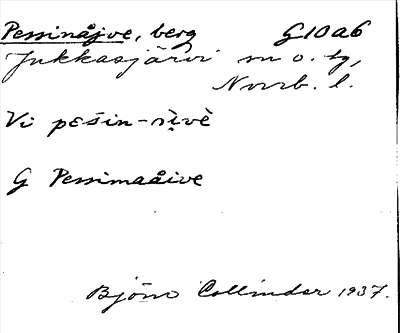 Pessinåjve, berg G10a6
Jukkasjärvi sn o. tg,
Norrb. l.
Vi pεšin-
G Pessimaåive
Björn Collinder 1937.